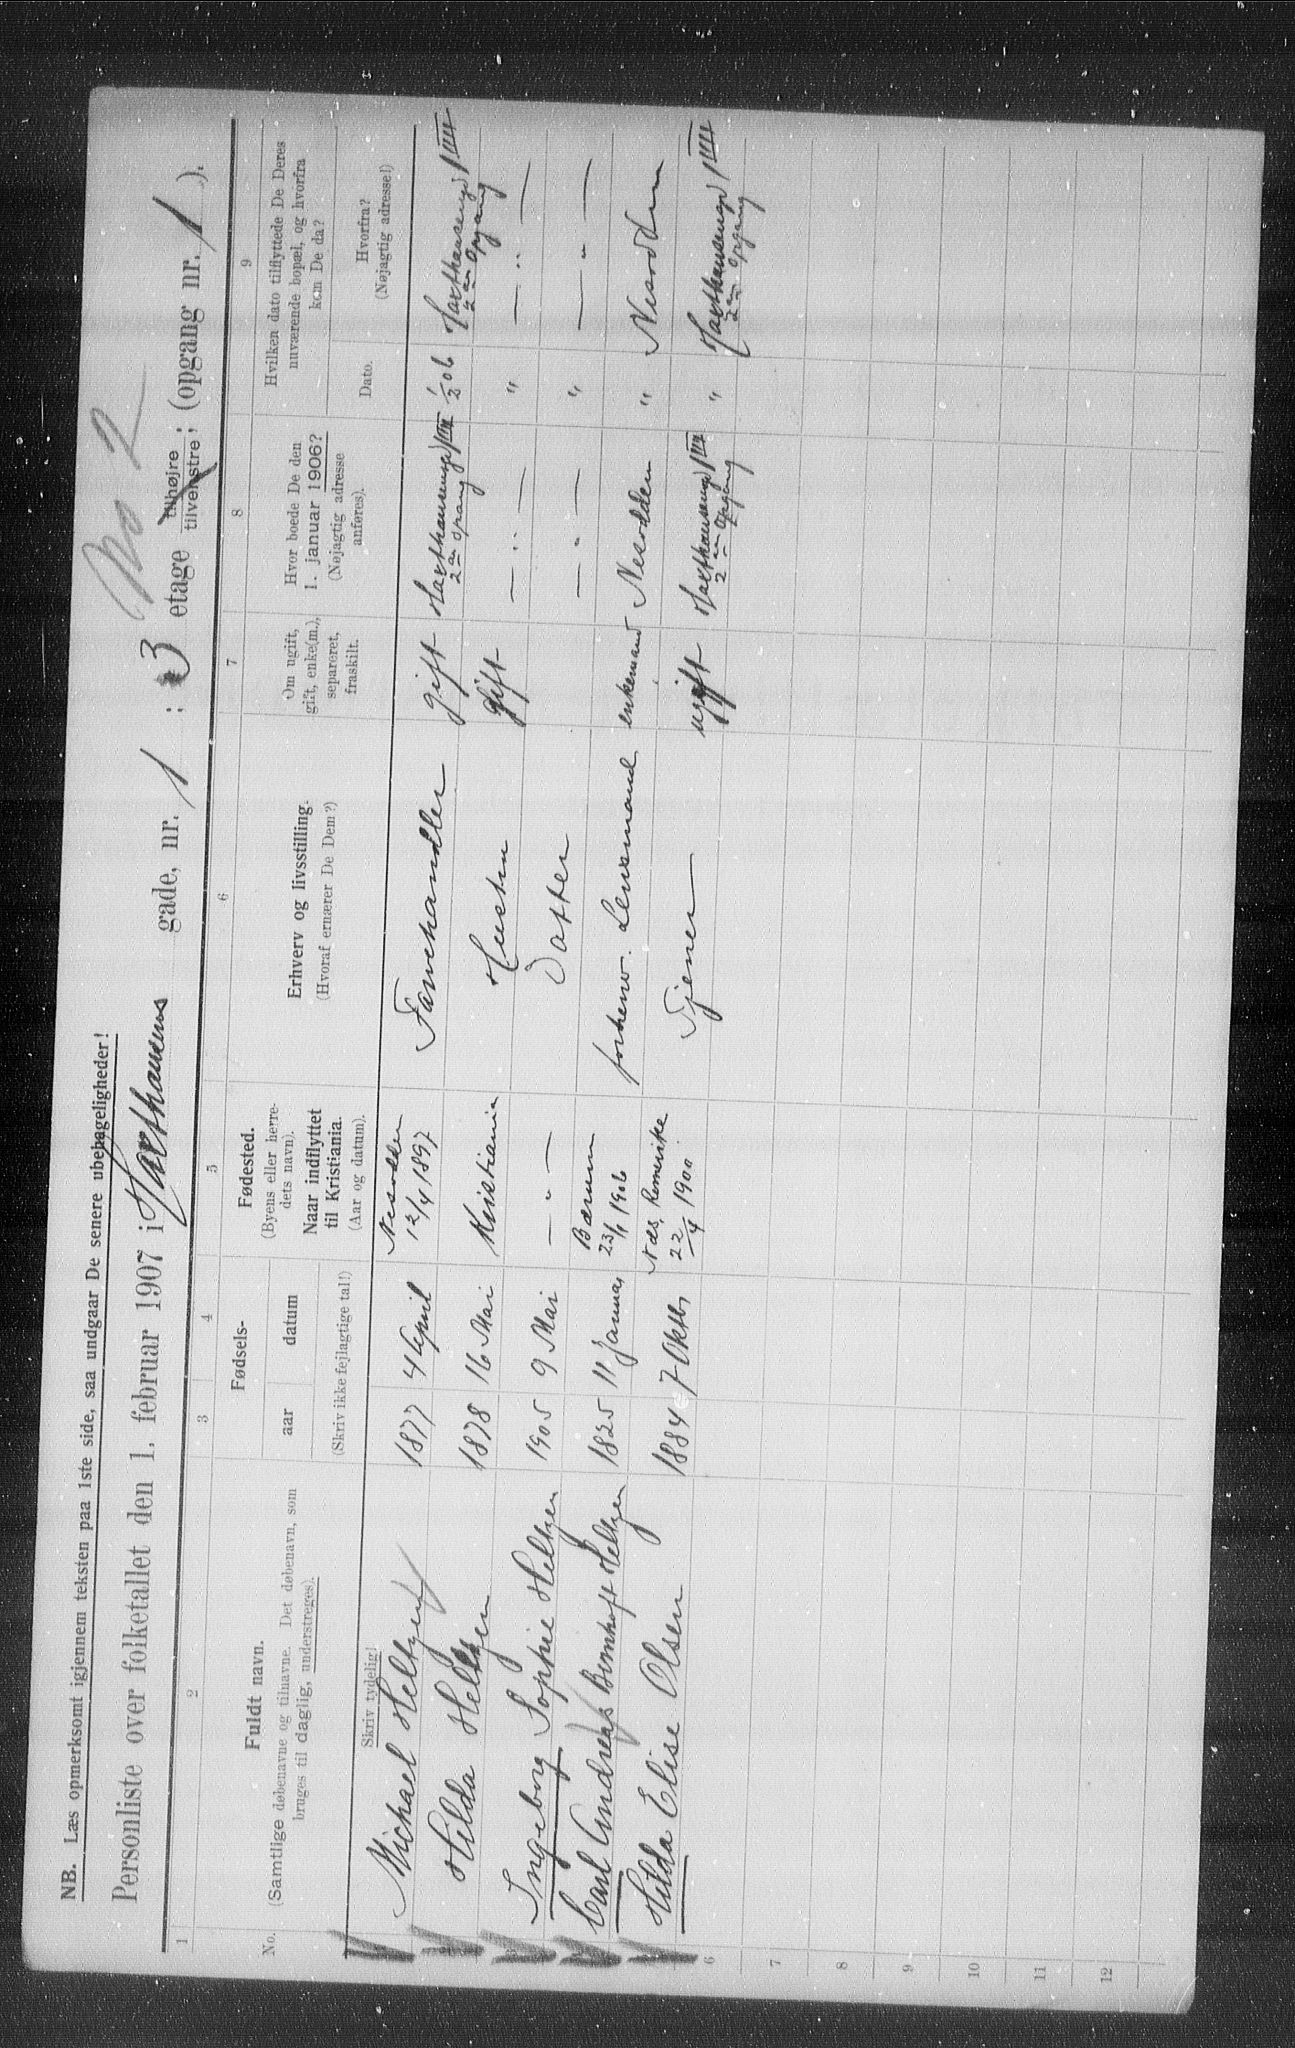 NB. Læs opmerksomt igjennem teksten paa 1ste side, saa undgaar De senere ubehageligheder!
No 2
Personliste over folketallet den 1. februar 1907 i Harthausens gade, nr. 1 ; 3 etage tilhøjre tilvenstre; (opgang nr. 1).
1 2 3 4 5 6 7 8 9
No.
Fuldt navn.
(Samtlige døbenavne og tilnavne. Det døbenavn, som
bruges til daglig, understreges).
Skriv tydelig!
Fødsels-
aar datum
(Skriv ikke fejlagtige tal!)
Fødested.
(Byens eller herre-
dets navn).
Naar indflyttet
til Kristiania.
(Aar og datum).
Erhverv og livsstilling.
(Hvoraf ernærer De Dem?)
Om ugift,
gift, enke(m.),
separeret,
fraskilt.
Hvor boede De den
1. januar 1906?
(Nøjagtig adresse
anføres).
Hvilken dato tilflyttede De Deres
nuværende bopæl, og hvorfra
kom De da?
Dato.
Hvorfra?
(Nøjagtig adresse!)
Michael Heltzen 1877 4 April Nesodden 12/4 1897 Farvehandler gift Harthausensgd 1 III 2en Opgang 1/2 06 Harthausensgd 1 III 2en Opgang
Hilda Heltzen 1878 16 Mai Kristiania Hustru gift — " — " — " —
Ingeborg Sophie Heltzen 1905 9 Mai — " — Datter — " — " — " —
Carl Andreas Bernhoft Heltzen 1825 11 januar Bærum 23/1 1906 forhenv. Lensmand enkemand Nesodden " Nesodden
Hilda Elise Olsen 1884 7 Oktbr Næs, Romerike 22/4 1900 Tjener ugift Harthausensgd 1 III 2en Opgang " Harthausensgd 1 III 2en Opgang
6
7
8
9
10
11
12